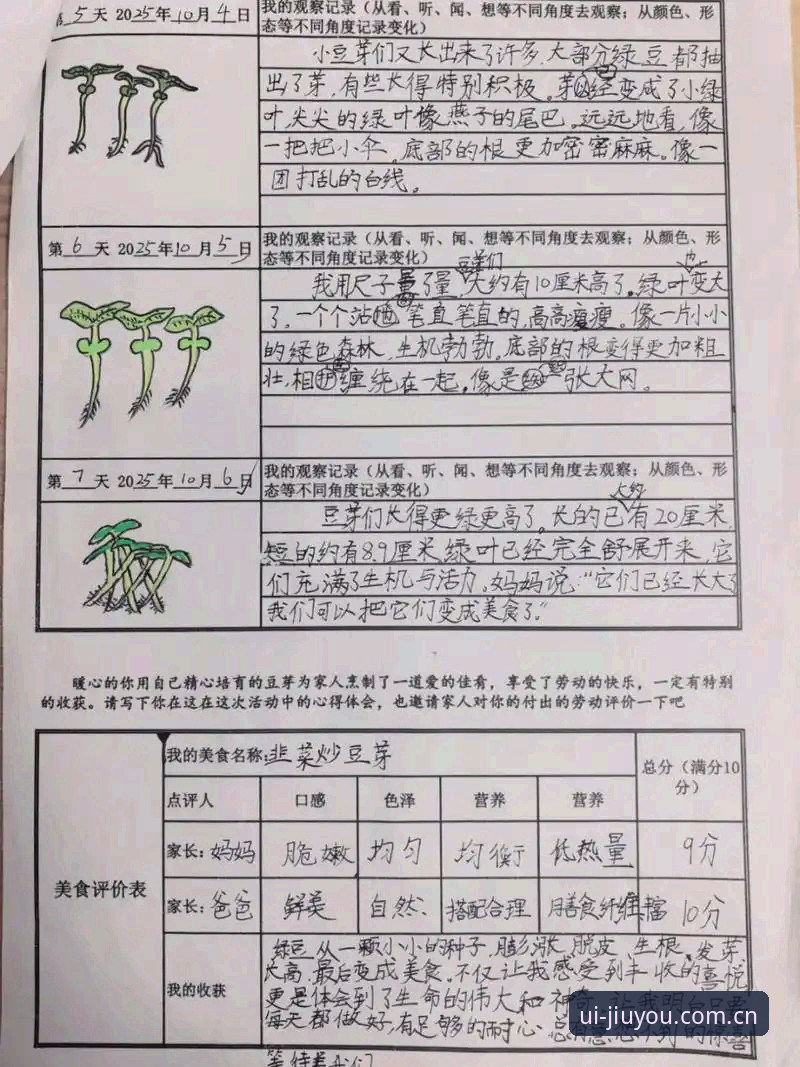 第5天 2025年10月4日
我的观察记录（从看、听、闻、想等不同角度去观察；从颜色、形态等不同角度记录变化）
小豆芽们又长出来了许多，大部分绿豆都抽
出了芽，有些长得特别积极。芽已经变成了小绿
叶，尖尖的绿叶像燕子的尾巴。远远地看，像
一把把小伞。底部的根更加密密麻麻。像一
团打乱的白线。
第6天 2025年10月5日
我的观察记录（从看、听、闻、想等不同角度去观察；从颜色、形态等不同角度记录变化）
我用尺子量了量，豆芽们大约有10厘米高了。绿叶也变大
了，一个个站笔直笔直的，高高瘦瘦。像一片小小
的绿色森林，生机勃勃。底部的根变得更加粗
壮，相缠绕在一起。像是一张大网。
第7天 2025年10月6日
我的观察记录（从看、听、闻、想等不同角度去观察；从颜色、形态等不同角度记录变化）
豆芽们长得更绿更高了。长的已大约有20厘米，
短的约有8.9厘米，绿叶已经完全舒展开来，它
们充满了生机与活力。妈妈说：“它们已经长大了
我们可以把它们变成美食了。”
暖心的你用自己精心培育的豆芽为家人烹制了一道爱的佳肴，享受了劳动的快乐，一定有特别
的收获。请写下你在这在这次活动中的心得体会，也邀请家人对你的付出的劳动评价一下吧
美食评价表
我的美食名称：韭菜炒豆芽
总分（满分10分）
点评人 口感 色泽 营养 营养
家长：妈妈 脆嫩 均匀 均衡 低热量 9分
家长：爸爸 鲜美 自然、 搭配合理 膳食纤维丰富 10分
我的收获
绿豆从一颗小小的种子，膨涨、脱皮、生根、发芽
长高，最后变成美食。不仅让我感受到丰收的喜悦
更是体会到了生命的伟大和神奇，让我明白只要
每天都做好，有足够的耐心，总有意想不到的惊喜
等待着我们
ui-jiuyou.com.cn